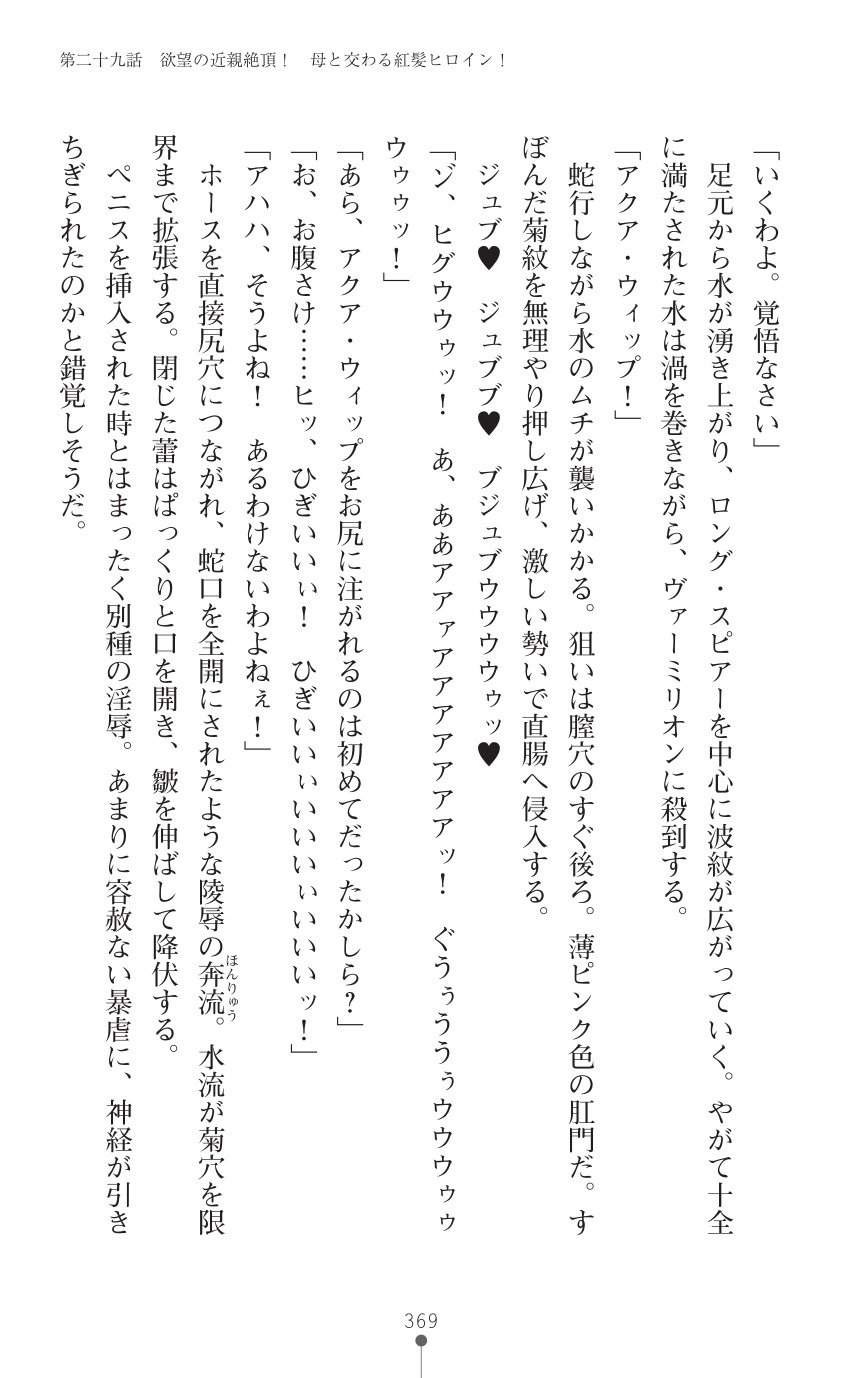 第二十九話　欲望の近親絶頂！　母と交わる紅髪ヒロイン！
「いくわよ。覚悟なさい」
　足元から水が湧き上がり、ロング・スピアーを中心に波紋が広がっていく。やがて十全
に満たされた水は渦を巻きながら、ヴァーミリオンに殺到する。
「アクア・ウィップ！」
　蛇行しながら水のムチが襲いかかる。狙いは膣穴のすぐ後ろ。薄ピンク色の肛門だ。す
ぼんだ菊紋を無理やり押し広げ、激しい勢いで直腸へ侵入する。
　ジュブ♥　ジュブブ♥　ブジュブウウウウゥッ♥
「ゾ、ヒグウウゥッ！　あ、ああアアァアアアアアアアッ！　ぐうぅううぅウウウゥゥ
ウゥゥッ！」
「あら、アクア・ウィップをお尻に注がれるのは初めてだったかしら？」
「お、お腹さけ……ヒッ、ひぎいいぃ！　ひぎいいぃいいいぃいいいッ！」
「アハハ、そうよね！　あるわけないわよねぇ！」
　ホースを直接尻穴につながれ、蛇口を全開にされたような陵辱の奔流。水流が菊穴を限
ほんりゅう
界まで拡張する。閉じた蕾はぱっくりと口を開き、皺を伸ばして降伏する。
　ペニスを挿入された時とはまったく別種の淫辱。あまりに容赦ない暴虐に、神経が引き
ちぎられたのかと錯覚しそうだ。
369